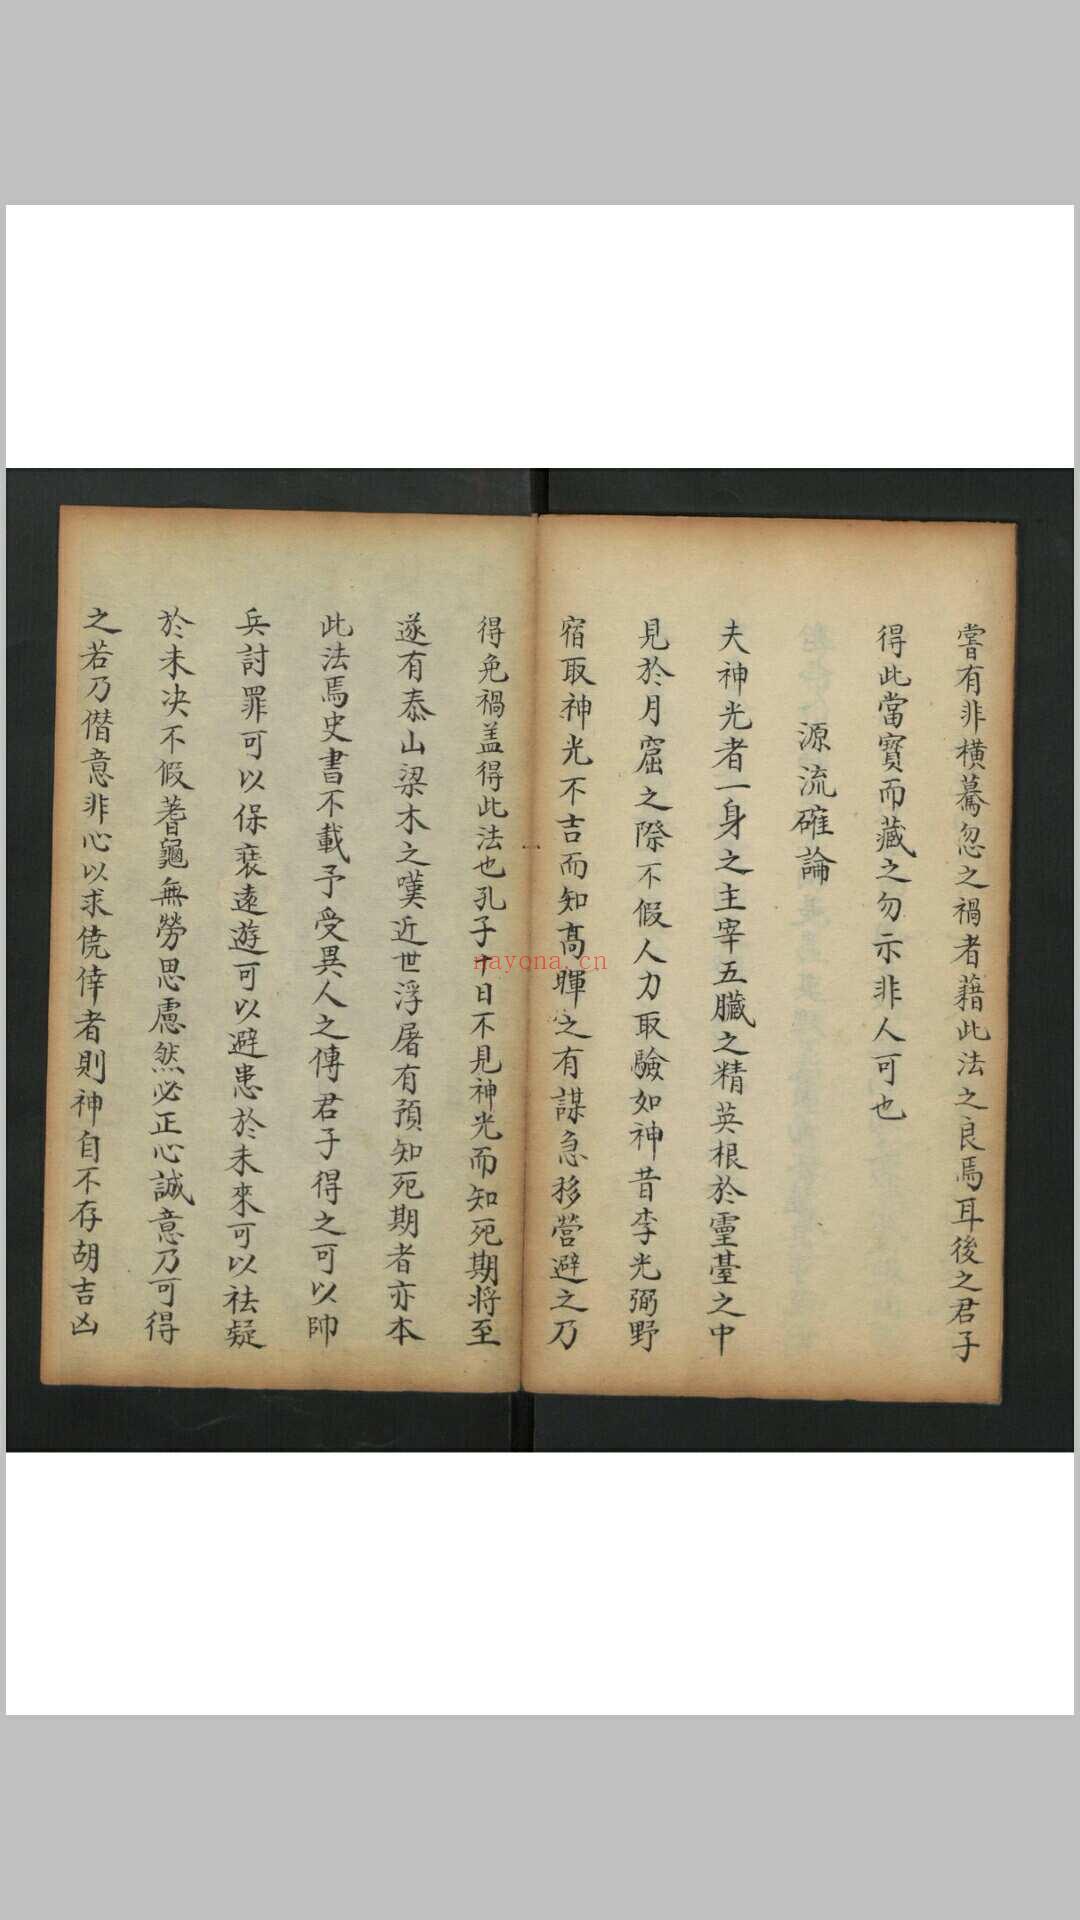 嘗有非橫驀忽之禍者藉此法之良焉耳後之君子
得此當寳而藏之勿示非人可也
源流確論
夫神光者一身之主宰五臟之精英根於靈臺之中
見於月窟之際不假人力取驗如神昔李光弼野
宿取神光不吉而知髙暉之有謀急移營避之乃
得免禍盖得此法也孔子十日不見神光而知死期将至
遂有泰山梁木之嘆近世浮屠有預知死期者亦本
此法焉史書不載予受異人之傳君子得之可以帥
兵討罪可以保衰遠遊可以避患於未來可以祛疑
於未决不假蓍龜無勞思慮然必正心誠意乃可得
之若乃僭意非心以求僥倖者則神自不存胡吉凶
nayona.cn